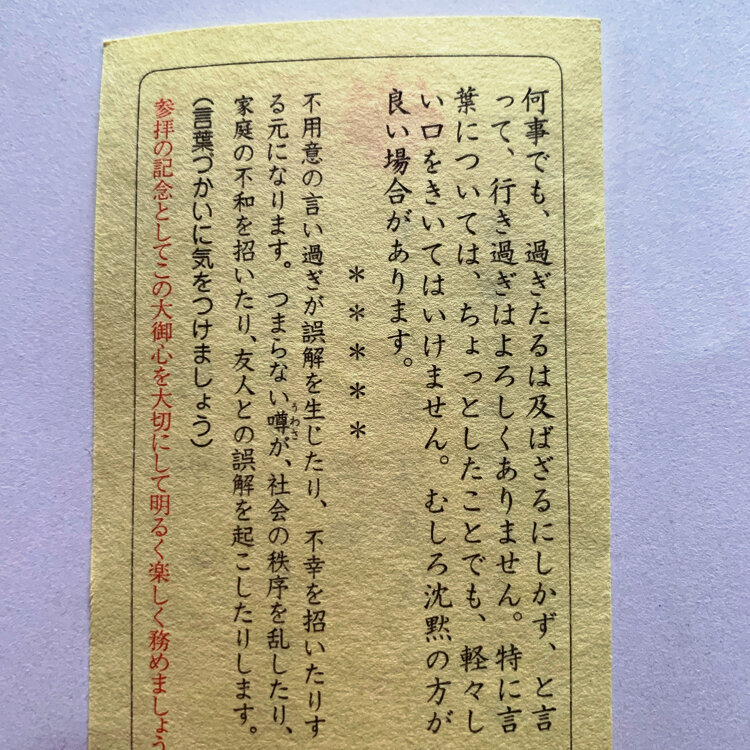 何事でも、過ぎたるは及ばざるにしかず、と言
って、行き過ぎはよろしくありません。特に言
葉については、ちょっとしたことでも、軽々し
い口をきいてはいけません。むしろ沈黙の方が
良い場合があります。
＊＊＊＊＊
不用意の言い過ぎが誤解を生じたり、不幸を招いたりす
る元になります。つまらない噂が、社会の秩序を乱したり、
うわさ
家庭の不和を招いたり、友人との誤解を起こしたりします。
(言葉づかいに気をつけましょう)
参拝の記念としてこの大御心を大切にして明るく楽しく務めましょう